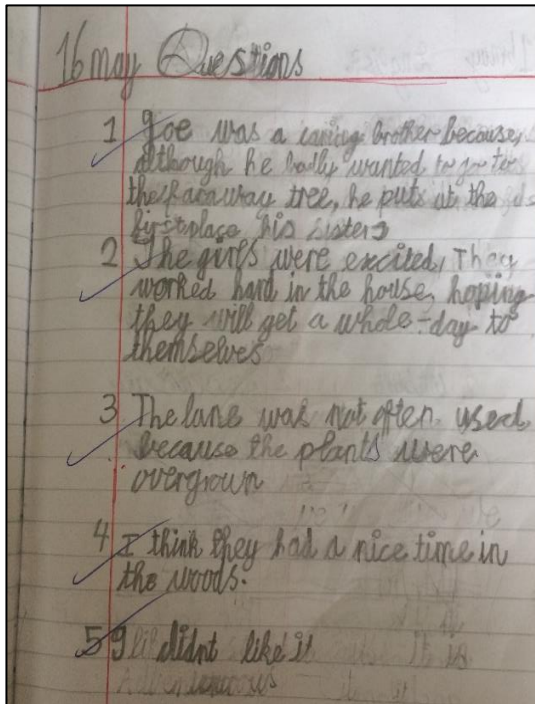 16 may Questions
1 Joe was a caring brother because,
although he badly wanted to go to
the faraway tree, he puts at the
first place his sisters
2 The girls were excited, They
worked hard in the house, hoping
they will get a whole-day to
themselves
3 The lane was not often used
because the plants were
overgrown
4 I think they had a nice time in
the woods.
5 I didnt like it